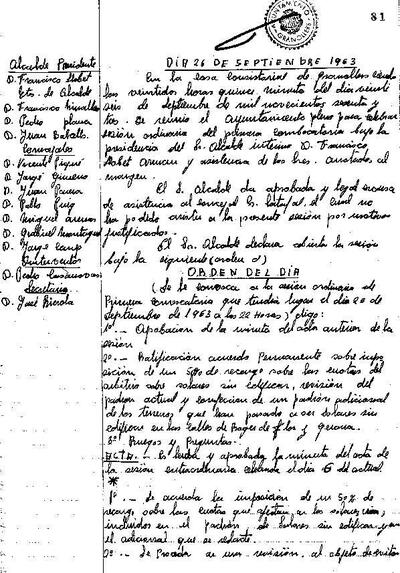 81
AYUNTAMIENTO
GRANOLLERS
Alcalde Presidente
D. Francisco Llobet
Ttes. de Alcalde
D. Francisco
D. Pedro
D. Juan
Concejales
D. Vicente
D. Jorge Gimeno
D. Juan Parma
D. Pablo Puig
D. Miguel
D. Gabriel
D. Jorge Camp
Interventor
D. Pedro
Secretario
D. José
DIA 26 DE SEPTIEMBRE 1963
En la Casa Consistorial de Granollers siendo
las veintidos horas quince minutos del dia veinti
seis de septiembre de mil novecientos sesenta y
tres. Se reunió el Ayuntamiento pleno para celebrar
sesión ordinaria del primera convocatoria bajo la
presidencia del Sr. Alcalde interino D. Francisco
Llobet Arnau y asistencia de los Sres. anotados al
margen.
El S. Alcalde da aprobada y legal excusa
de asistencia al concejal Sr. el cual no
ha podido asistir a la presente sesión por motivos
justificados.
El Sr. Alcalde declara abierta la sesión
bajo la siguiente
ORDEN DEL DIA
(Se le convoca a la sesión ordinaria de
Primera Convocatoria que tendrá lugar el dia 26 de
Septiembre de 1963 a las 22 Horas)
1º.- Aprobacion de la minuta del acta anterior de la
sesión
2º.- Ratificación acuerdo Permanente sobre impo
sición de un 50% de recargo sobre las cuotas del
arbitrio sobre solares sin edificar, revisión del
padron actual y confeccion de un padrón adicional
de los terrenos que han pasado a ser solares sin
edificar en las calles de Roger de Flor y Gerona.
3º Ruegos y Preguntas.
ACTA.- Es leida y aprobada la minuta del acta de
la sesión extraordinaria celebrada el dia 6 del actual
*
1º.- Se acuerda la imposición de un 50% de
recargo sobre las cuotas que afectan a los solares
incluidos en el padrón de solares sin edificar y en
el adicional que se redacte.
2º.- Se proceda a una revisión al objeto de evitar